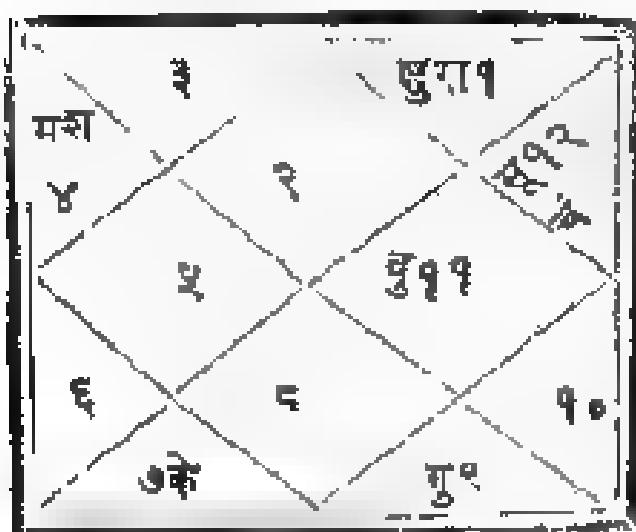 ३
शुरा१
मश
४
२
१२
५
११
६
८
१०
७के
गु९